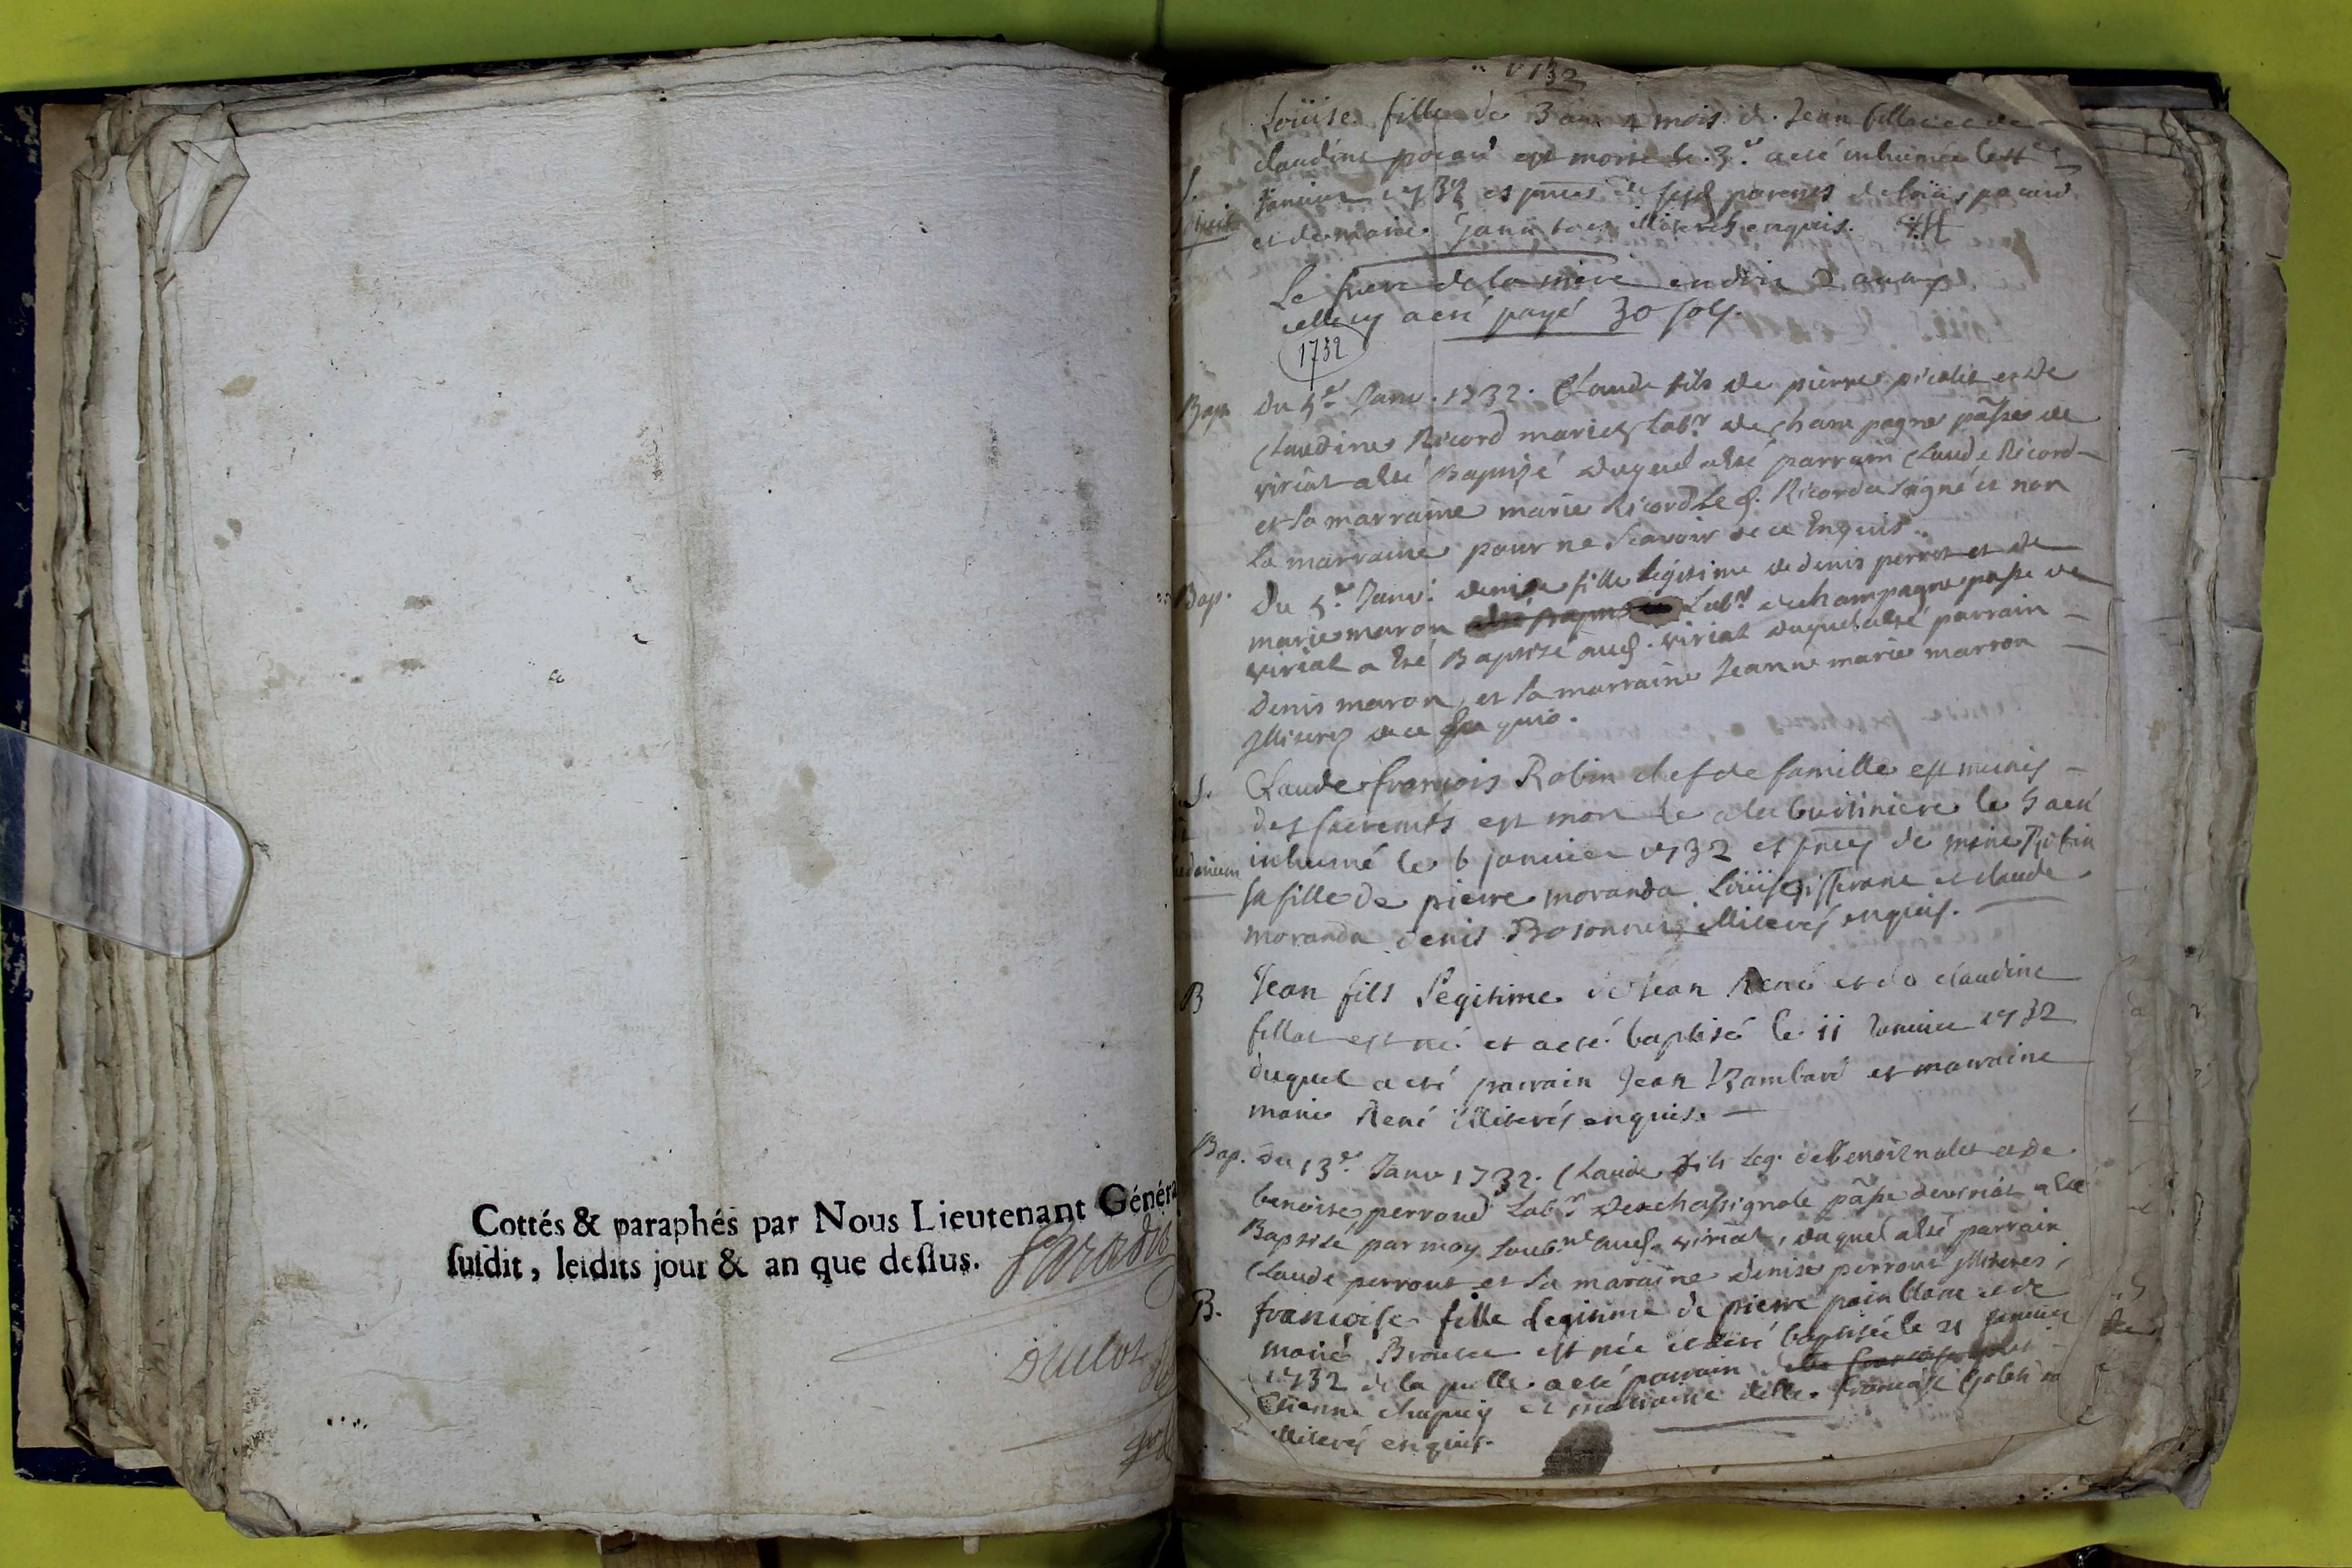 Cottés & paraphés par Nous Lieutenant Généra
susdit, lesdits jour & an que dessus.
1732
Loüise fille de 3 ans 4 mois de Jean fillo et de
claudine pocard est morte le 3e a eté inhumée le 4e
Janvier 1732 es pnces de ses parents de loüis pocard
et de marie illiterés enquis.
Le frere de la mere
a eté payé 30 sols.
1732
Bap. Du 5e Janv. 1732. Claude fils de pierre picolet et de
Claudine Ricord mariés labr de champagne passe de
viriat a Eté Baptizé duquel a eté parrain Claude Ricord
et la marraine marie Ricord Le d. Ricord a signé et non
la marraine pour ne scavoir de ce Enquis.
Bap. Du 5e Janv. denise fille legitime de denis perrot et de
marie maron Labr de champagne passe de
viriat a Eté Baptizé aud. viriat duquel a eté parrain
Denis maron, et la marraine Jeanne marie marron
Illiterés de ce Enquis.
S. Claude françois Robin chef de famille est munis
des sacremts est mort le a la buisiniere le 5 a eté
inhumé le 6 janvier 1732 es pnces de Robin
sa fille de pierre moranda Loüise et claude
moranda denis Bosonnet illiterés enquis.
B Jean fils Legitime de Jean René et de claudine
fillot est né et a eté baptisé le 11 Janvier 1732
duquel a eté parrain Jean Rambard et marraine
marie René illiterés enquis.
Bap. Du 13e Janv 1732. Claude fils leg. de Benoit nalet et de
benoite perroud Labr de chassignole passe de viriat a Eté
Baptizé par moy soubne aud. viriat, duquel a eté parrain
Claude perrout et la maraine denise perrout illiteres,
B. francoise fille legitime de pierre pain blanc et de
marie Brouce est née et a eté baptisée le 21 janvier
1732 de la quelle a eté parrain
Etienne chapuy et marraine delle. francoise
illiterés enquis.